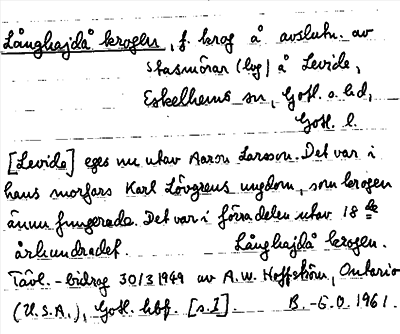 Långhajdå krogen, f. krog å avslutn. av
Stasmörar (byg) å Levide,
Eskelhems sn, Gotl. s. hd,
Gotl. l.
[Levide] eges nu utav Aaron Larsson. Det var i
hans morfars Karl Lövgrens ungdom, som krogen
ännu fungerade. Det var i förra delen utav 18 de
århundradet. Långhajdå krogen.
Tävl.-bidrag 30/3 1949 av A.W. Hoffström, Ontario
(U.S.A.), Gotl. hbf. [s.I]. B.-G.O. 1961.